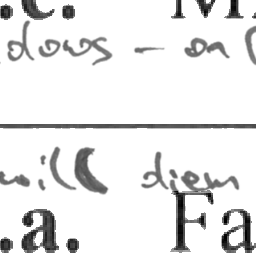 .c. M
dows – on
will diem
.a. Fa